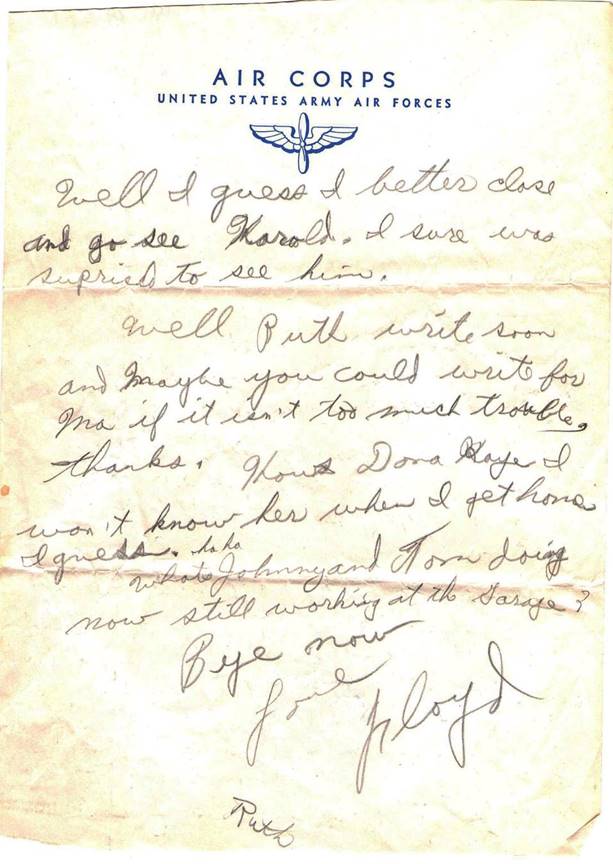 AIR CORPS
UNITED STATES ARMY AIR FORCES
Well I guess I better close
and go see Harold. I sure was
suprised to see him.
Well Ruth write soon
and maybe you could write for
Ma if it isn't too much trouble,
thanks. Hows Dona Kaye I
won't know her when I get home
I guess. ha ha
whats Johnny and Tom doing
now still working at the Garage?
Bye now
Love Floyd
Ruth